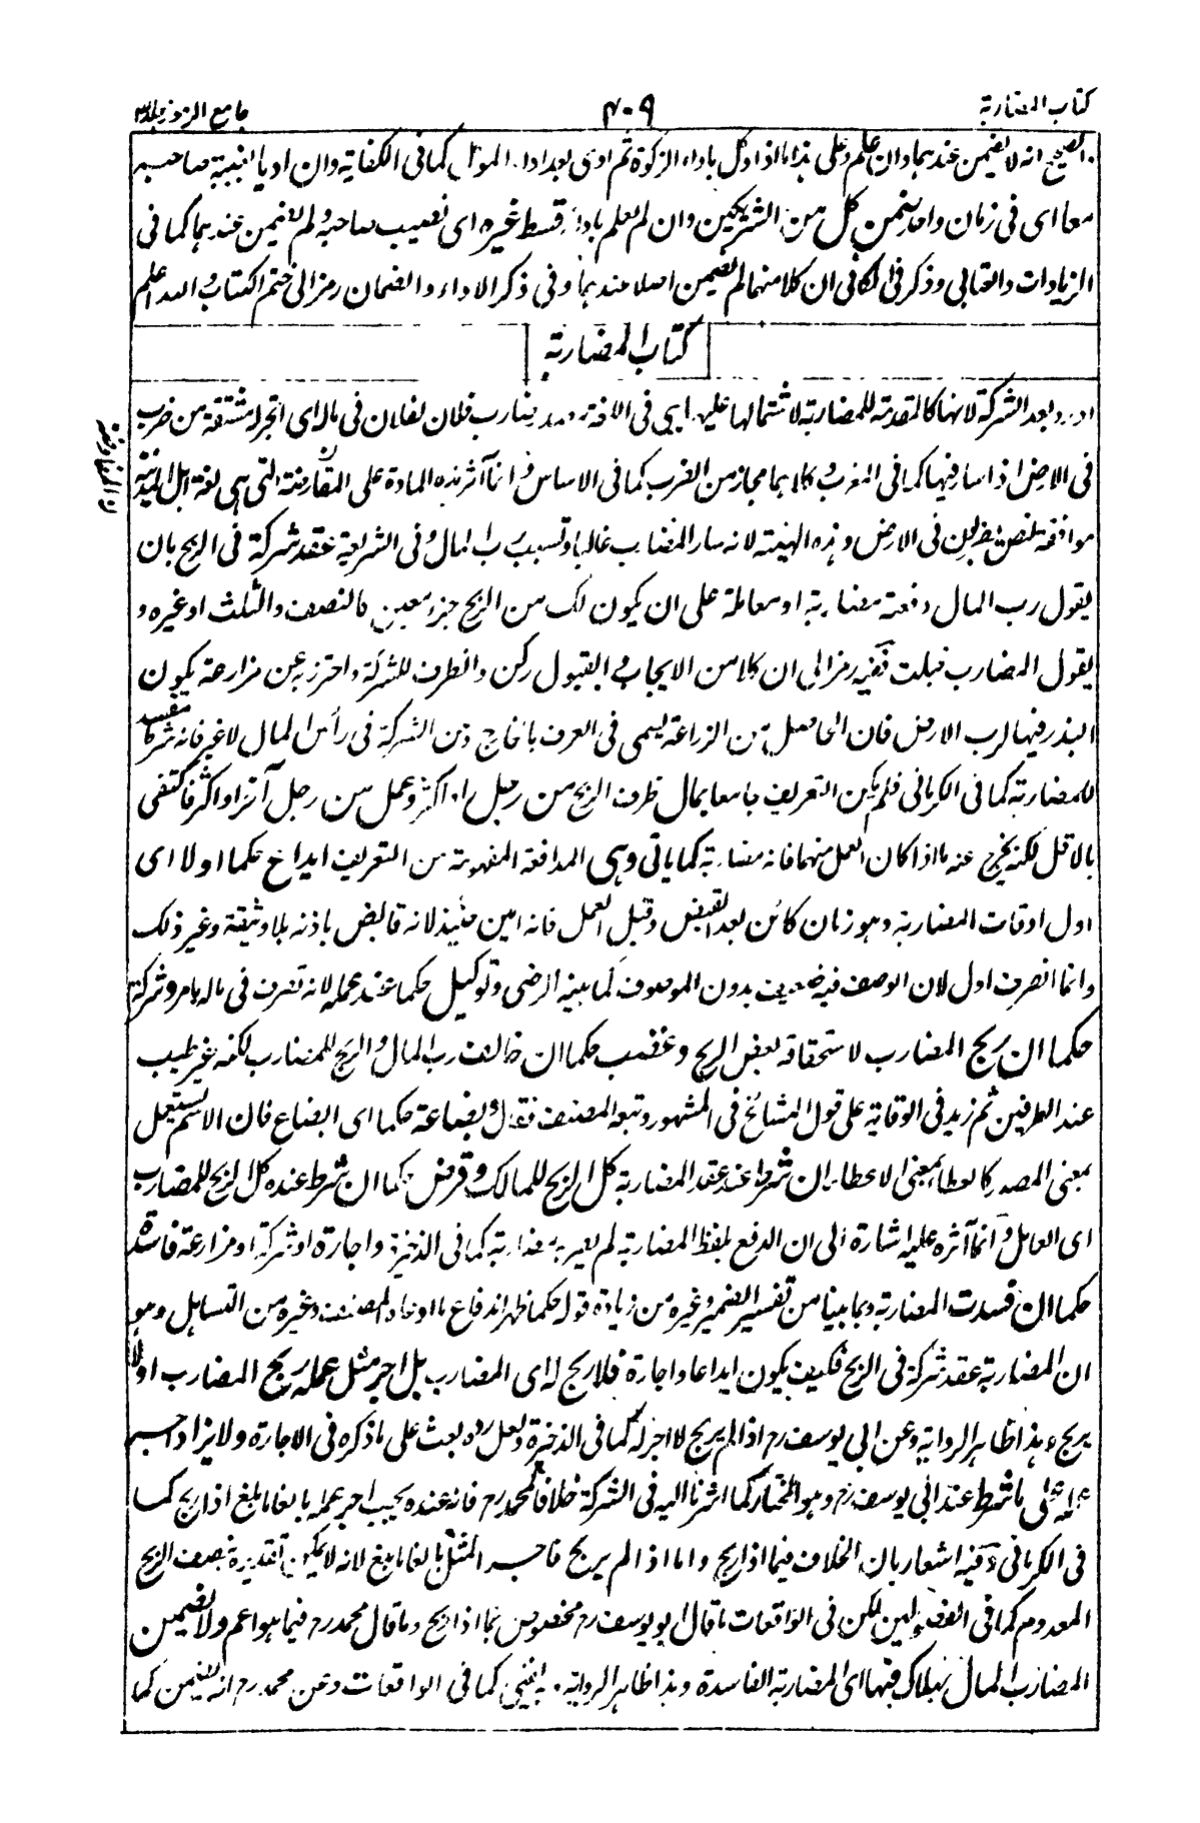 كتاب المضاربة
٤٠٩
جامع الرموز جلد٣
الصحيح انه لا يضمن عندهما وان علم وعلى هذا ما اذا وكل باداء الزكوة ثم ادى بعد اداء الموكل كما في الكفاية وان اديا بغيبة صاحبه
معا اى في زمان واحد ضمن كل من الشريكين وان لم يعلم باداء قسط غيره اى نصيب صاحبه ولم يضمن عندهما كما في
الزيادات والعتابي وذكر في الكافي ان كلا منهما لم يضمن اصلا عندهما وفي ذكر الاداء والضمان رمز الى ختم الكتاب والله اعلم
كتاب المضاربة
اورد بعد الشركة لانها كالمقدمة للمضاربة لاشتمالها عليها هي في اللغة مصدر يضارب فلان لفلان في ماله اى اتجر له مشتقة من ضرب
في الارض اذا سار فيها كما في المغرب وكلاهما مجاز من الضرب كما في الاساس وانما آثر هذه المادة على المقارضة التي هي لغة اهل المدينة
موافقة لنص يضربون في الارض وهذه الهيئة لانه سار المضارب غالبا وتسبب رب المال وفي الشريعة عقد شركة في الربح بان
يقول رب المال دفعته مضاربة او معاملة على ان يكون لك من الربح جزء معين كالنصف والثلث او غيره و
يقول المضارب قبلت ففيه رمز الى ان كلا من الايجاب والقبول ركن والظرف للشركة واحترز به عن مزارعة يكون
البذر فيها لرب الارض فان الحاصل من الزراعة يسمى في العرف بالخارج وعن الشركة في رأس المال لا غير فانه شرط مفسد
للمضاربة كما في الكرماني فلم يكن التعريف جامعا بمال ظرف الربح من رجل او اكثر وعمل من رجل آخر او اكثر فاكتفى
بالاقل لكنه يخرج عنه ما اذا كان العمل منهما فانه مضاربة كما يأتي وهي المدافعة المفهومة من التعريف ايداع حكما اولا اى
اول اوقات المضاربة وهو زمان كائن بعد القبض وقبل العمل فانه امين حينئذ لانه قابض باذنه بلا وثيقة وغير ذلك
وانما انصرف اول لان الوصف فيه ضعيف بدون الموصوف لما بينه الرضى وتوكيل حكما عند عمله لانه تصرف في ماله بامره وشركة
حكما ان ربح المضارب لاستحقاقه بعض الربح وغصب حكما ان خالف رب المال والربح للمضارب لكنه غير طيب
عند الطرفين ثم زيد في الوقاية على قول المشائخ في المشهور وتبعه المصنف فقال وبضاعة حكما اى ابضاع فان الاسم يستعمل
بمعنى المصدر كالعطاء بمعنى الاعطاء ان شرط عند عقد المضاربة كل الربح للمالك وقرض حكما ان شرط عنده كل الربح للمضارب
اى العامل وانما آثره عليه اشارة الى ان الدفع بلفظ المضاربة لم يصر به مضاربة كما في الذخيرة واجارة او شركة او مزارعة فاسدة
حكما ان فسدت المضاربة وبما بينا من تفسير الضمير وغيره من زيادة قوله حكما ظهر اندفاع ما ادعاه المصنف وغيره من التساهل وهو
ان المضاربة عقد شركة في الربح فكيف يكون ايداعا واجارة فلا ربح له اى المضارب بل اجر مثل عمله ربح المضارب او لا
يربح وهذا ظاهر الرواية وعن ابي يوسف رح اذا لم يربح لا اجر له كما في الذخيرة ولعل هذه بعث على ما ذكره في الاجارة ولا يزاد اجر
عمله على ما شرط عند ابي يوسف رح وهو المختار كما اشرنا اليه في الشركة خلافا لمحمد رح فانه عنده يجب اجر عمله بالغا ما بلغ اذا ربح كما
في الكرماني وفيه اشعار بان الخلاف فيما اذا ربح واما اذا لم يربح فاجر المثل بالغا ما بلغ لانه لا يمكن تقديره بنصف الربح
المعدوم كما في الفصولين لكن في الواقعات ما قال ابو يوسف رح مخصوص بما اذا ربح وما قال محمد رح فيما هو اعم ولا يضمن
المضارب المال بهلاك فيها اى المضاربة الفاسدة وهذا ظاهر الرواية وبه يفتى كما في الواقعات وعن محمد رح انه يضمن كما